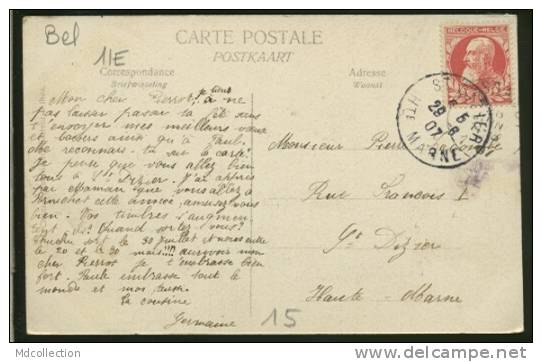 Bel
11E
CARTE POSTALE
POSTKAART
Correspondance
Briefwisseling
Adresse
Waarst
BELGIQUE-BELGIE
29 6
07
MARNE
Mon cher Pierrot, je tiens à ne
pas laisser passer ta fête sans
t'envoyer mes meilleurs vœux
et baisers ainsi qu'à Paul.
reconnais-tu sur la carte?
Je pense que vous allez bien
tous à St Dizier. J'ai appris
par Maman que vous allez à
cette année, amusez-vous
bien. Vos timbres s'augmen
tent ils? Quand sortez-vous?
sort le 30 juillet et nous entre
le 20 et le 30 mai!!!! au revoir mon
cher Pierrot je t'embrasse bien
fort. Paule embrasse tout le
monde et moi aussi.
La cousine
Germaine
Monsieur Pierre
Rue François I
St Dizier
Haute-Marne
15
MDcollection
http://www.delcampe.net